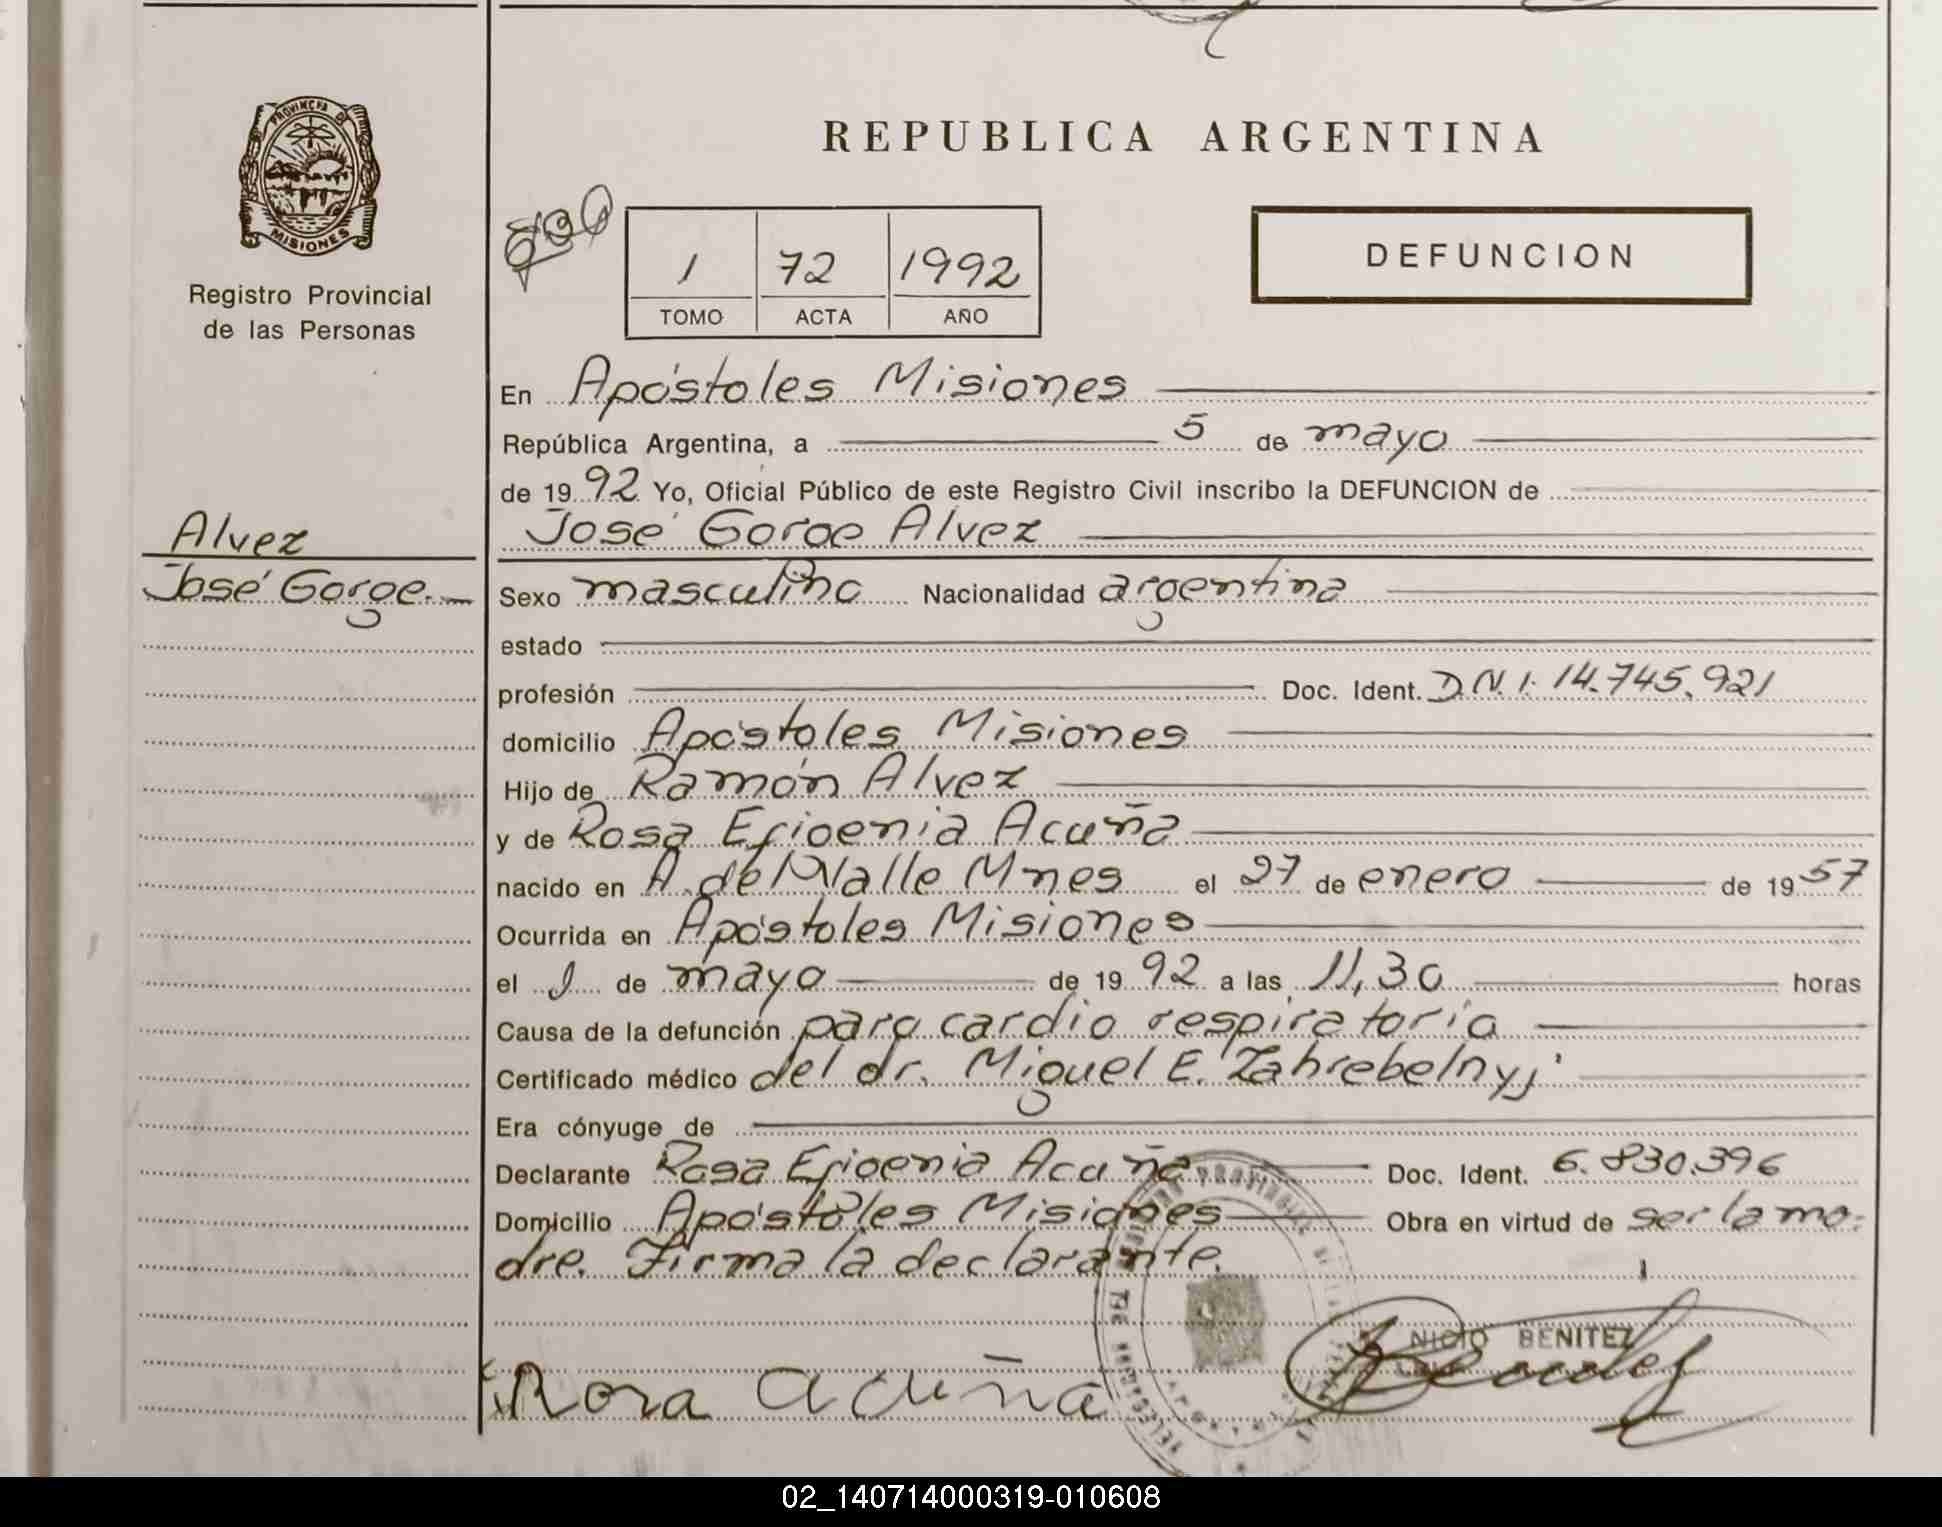 PROVINCIA DE
MISIONES
Registro Provincial
de las Personas
REPUBLICA ARGENTINA
1 72 1992
TOMO ACTA AÑO
DEFUNCION
En Apóstoles Misiones
República Argentina, a 5 de mayo
de 1992 Yo, Oficial Público de este Registro Civil inscribo la DEFUNCION de
José Gorge Alvez
Alvez
José Gorge.
Sexo masculino Nacionalidad argentina
estado
profesión Doc. Ident. D.N.I. 14.745.921
domicilio Apóstoles Misiones
Hijo de Ramón Alvez
y de Rosa Efigenia Acuña
nacido en A. del Valle Mnes el 27 de enero de 1957
Ocurrida en Apóstoles Misiones
el 1 de mayo de 1992 a las 11,30 horas
Causa de la defunción paro cardio respiratoria
Certificado médico del dr. Miguel E. Zahrebelnyj
Era cónyuge de
Declarante Rosa Efigenia Acuña Doc. Ident. 6.830.396
Domicilio Apóstoles Misiones Obra en virtud de ser la ma-
dre. Firma la declarante.
NICIO BENITEZ
Rosa Acuña
02_140714000319-010608